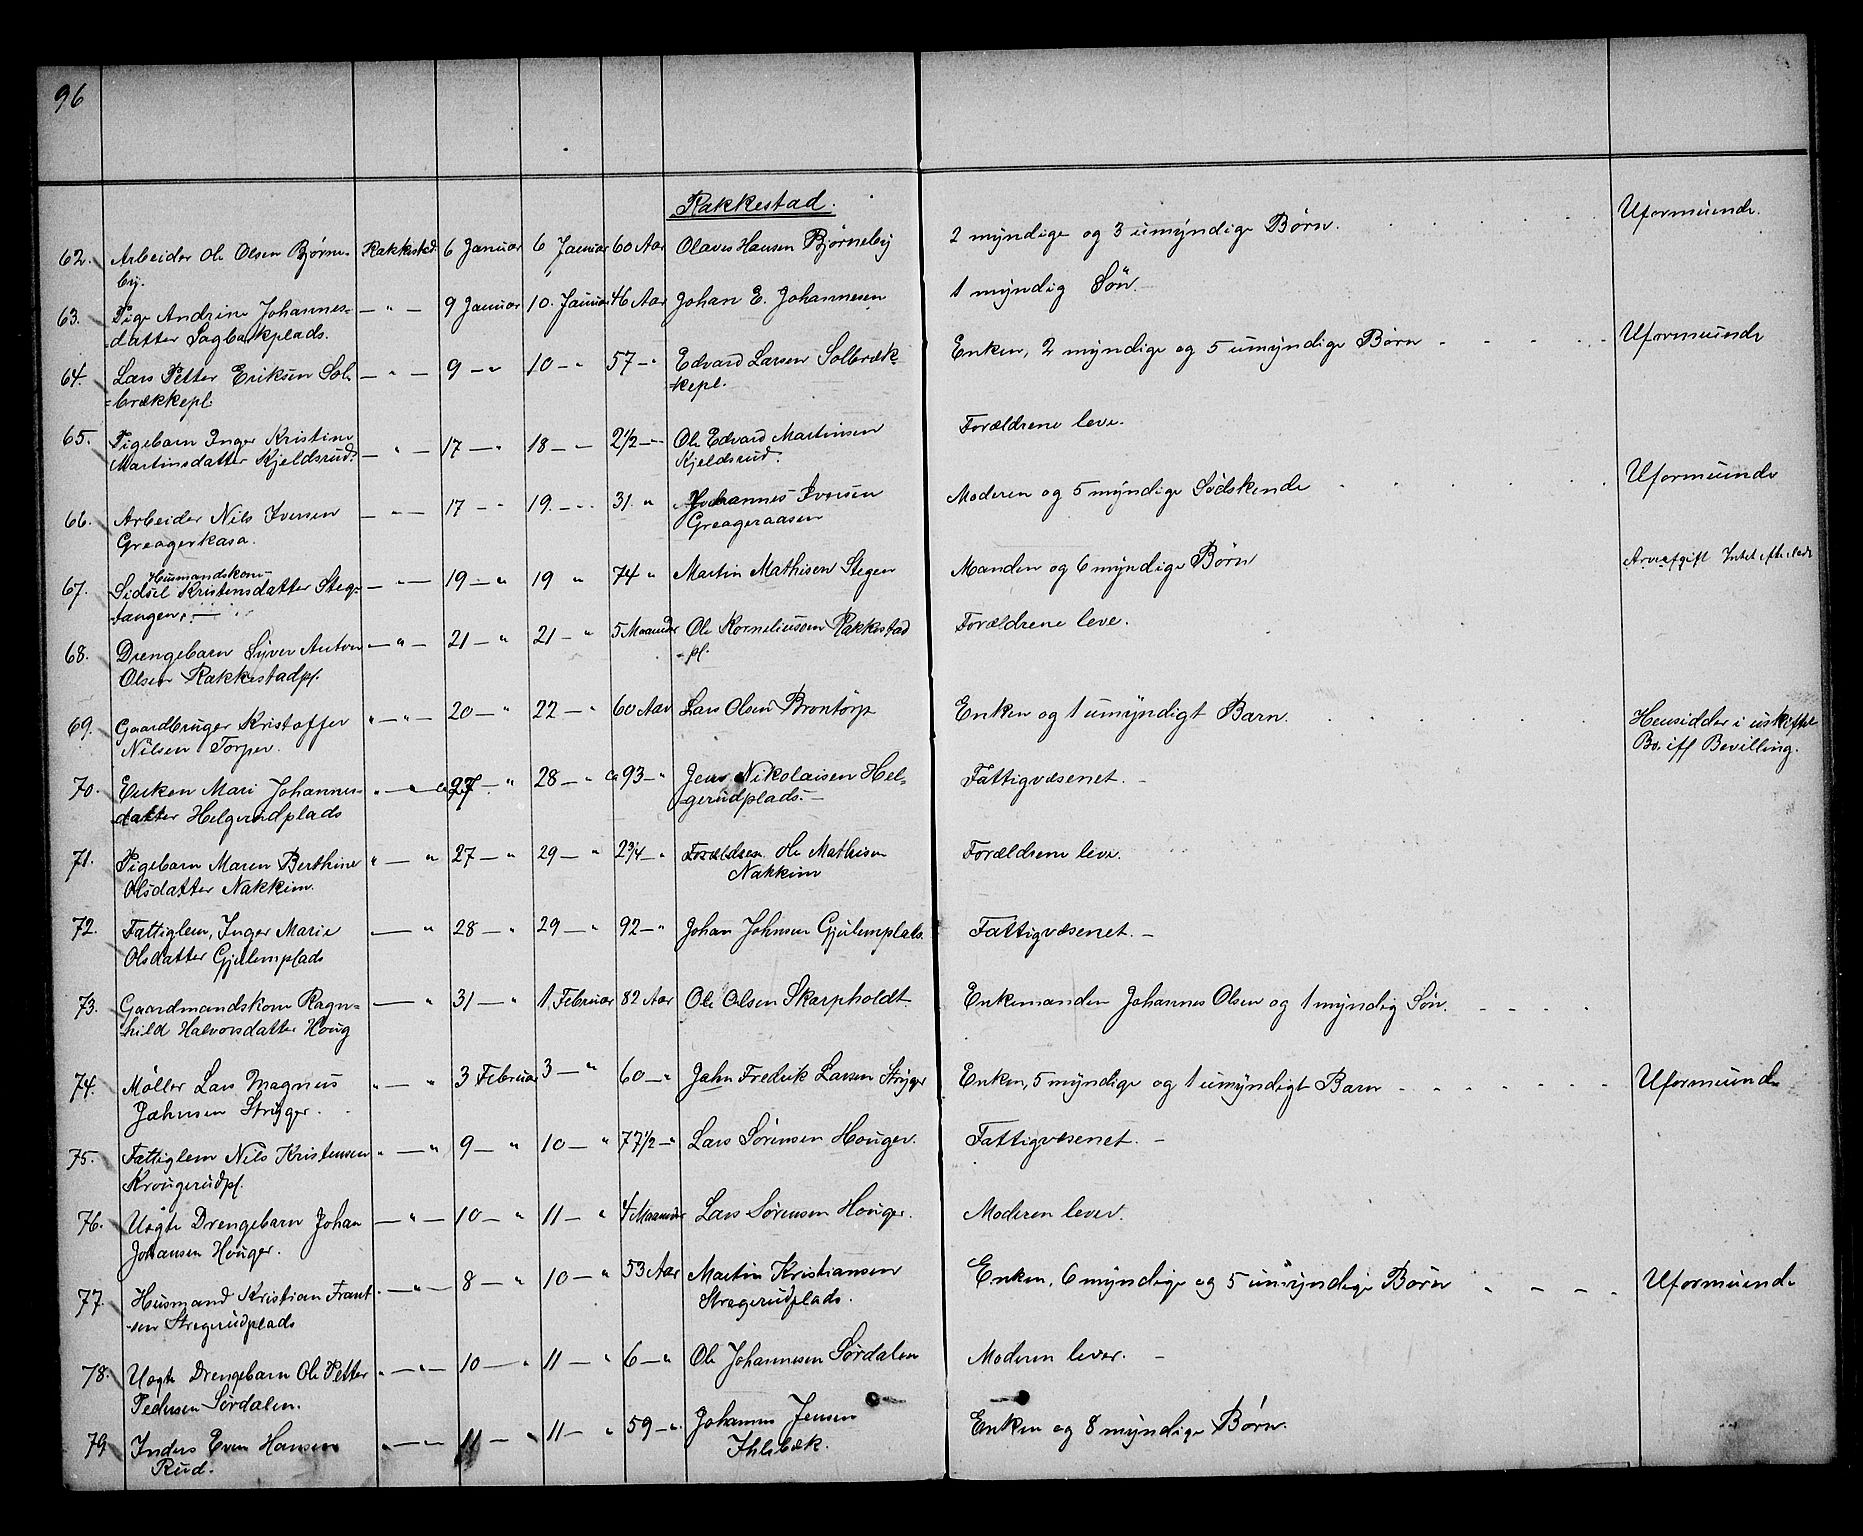 96
Rakkestad.
62. Arbeider Ole Olsen Bjørne- Rakkestad 6 Januar 6 Januar 60 Aar Olaves Hansen Bjørneby 2 myndige og 3 umyndige Børn. Uformuende.
by.
63. Pige Andrine Johannes- — " — 9 Januar 10. Januar 46 Aar Johan E. Johannesen 1 myndig Søn.
datter Sagbakplads.
64. Lars Petter Eriksen Sol- — " — 9 — " 10 — " 57 — " Edvard Larsen Solbræk- Enken, 2 myndige og 5 umyndige Børn Uformuende
brækkepl. kepl.
65. Pigebarn Inger Kristine — " — 17 — " 18 — 2 1/2 — Ole Edvard Martinsen Forældrene leve.
Martinsdatter Kjeldsrud. Kjeldsrud.
66. Arbeider Nils Iversen — " — 17 — " 19. — " 31. " Johannes Iversen Moderen og 5 myndige Sødskende Uformuende
Greagerkasa. Greageraasen
67. Husmandskone
Sidsel Kristensdatter Steg- — " — 19 — " 19 " 74 " Martin Mathisen Stegen Manden og 6 myndige Børn Arveafgift Intet efterladt
tangen. —
68. Drengebarn Syver Anton — " — 21 — " 21 — " 5 Maaneder Ole Korneliussen Rakkestad Forældrene leve.
Olsen Rakkestadpl. pl.
69. Gaardbruger Kristoffer " — " — 20 — " 22 — " 60 Aar Lars Olsen Brontorp Enken og 1 umyndigt Barn. Hensidder i uskiftet
Nilsen Torper. Bo. iflg Bevilling.
70. Enken Mari Johannes- " — " ca 27 — " 28 — " ca 93 — " Jens Nikolaisen Hel- Fattigvæsenet. —
datter Helgerudplads gerudplads. —
71. Pigebarn Maren Berthine " — " 27 — " 29 — " 2 3/4 — " Forældren Ole Mathisen Forældrene leve.
Olsdatter Nakkim. Nakkim
72. Fattiglem, Inger Marie — " 28 — " 29 — " 92 — " Johan Johnsen Gjulemplads. Fattigvæsenet. —
Olsdatter Gjulemplads
73. Gaardmandskone Ragn- — " 31 — " 1. Februar 82 Aar Ole Olsen Skarpholdt Enkemanden Johannes Olsen og 1 myndig Søn.
hild Halvorsdatter Houg
74. Møller Lars Magnus " — " 3 Februar 3 — " 60 — " Jahn Fredrik Larsen Stryger Enken, 5 myndige og 1 umyndigt Barn Uformuende
Jahnsen Stryger.
75. Fattiglem Nils Kristensen " — " 9 — " 10 — " 77 1/2 — " Lars Sørensen Houger. Fattigvæsenet. —
Krougerudpl.
76. Uægte Drengebarn Johan — " — 10 — " 11 — " 4 Maaneder Lars Sørensen Houger. Moderen lever.
Johansen Houger.
77. Husmand Kristian Frant- " — " — 8 — " 10 — " 53 Aar Martin Kristiansen Enken, 6 myndige og 5 umyndige Børn Uformuende
sen Stregerudplads Stregerudplads.
78. Uægte Drengebarn Ole Petter " — " — 10 — " 11 — " 6 — " Ole Johannesen Sørdalen Moderen lever. —
Pedersen Sørdalen.
79 Inders Even Hansen " — " — 11 — " 11 — " 59 — " Johannes Jensen Enken og 8 myndige Børn.
Rud. Ihlebæk.